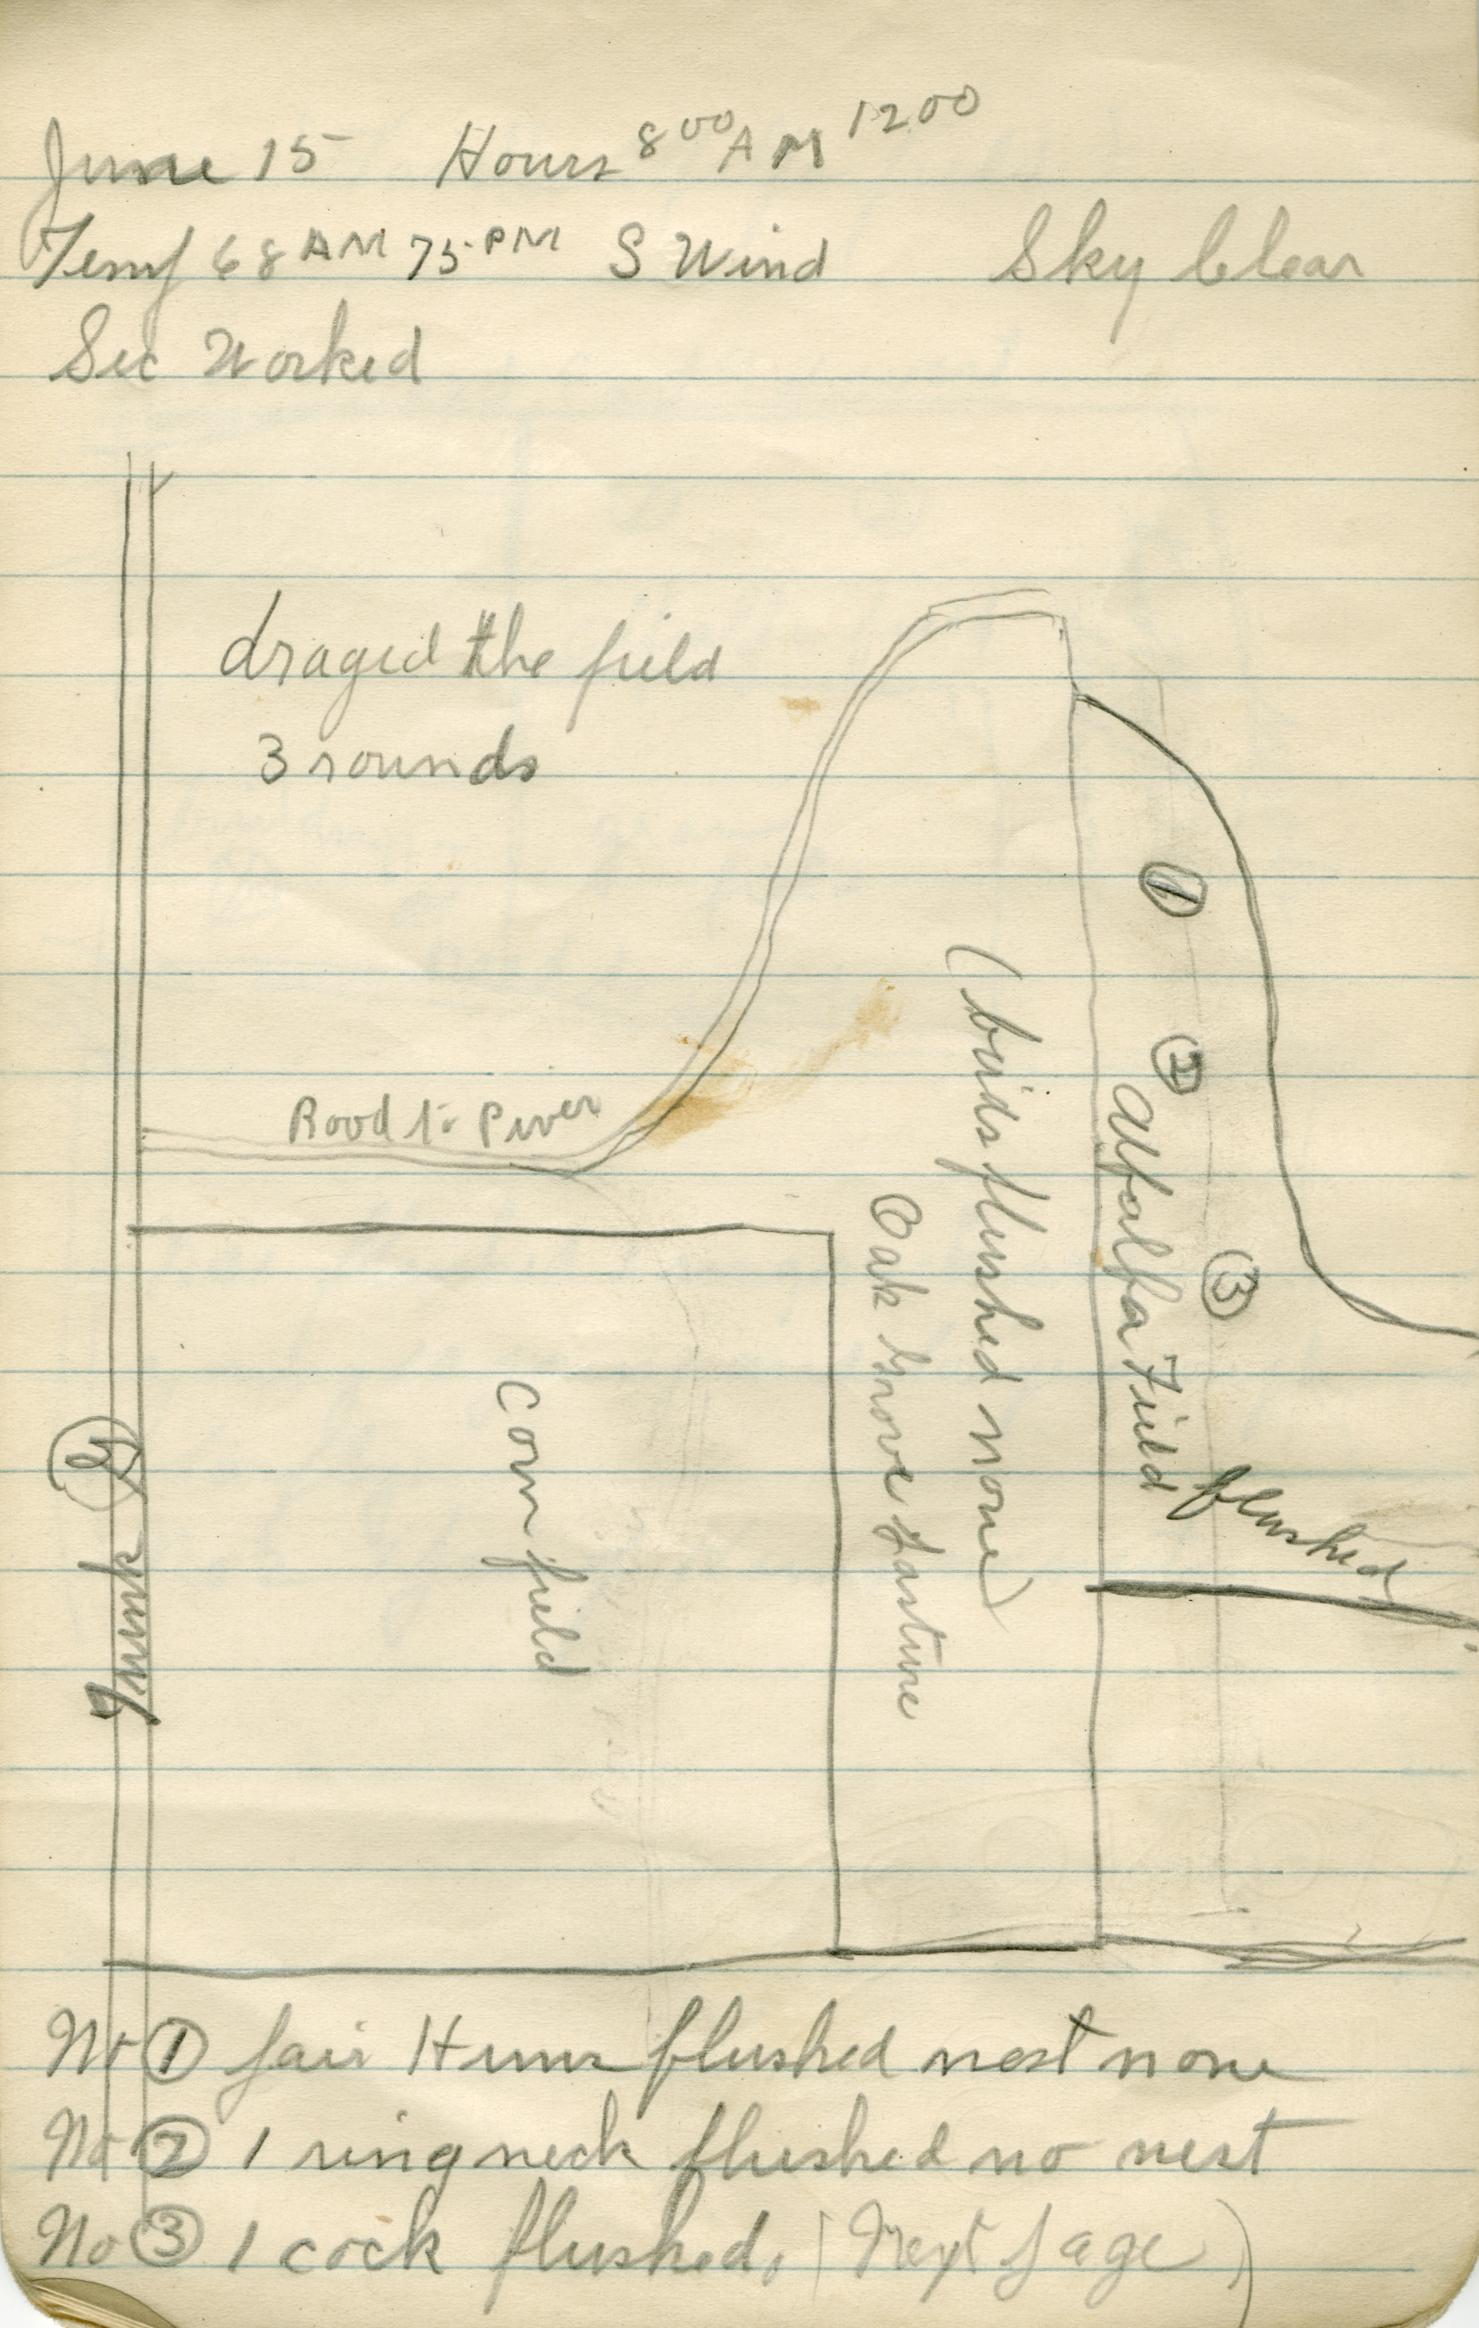 June 15 Hours 8 00 AM 1200
Temp 68 AM 75 PM S Wind Sky Clear
Sec Worked
draged the field
3 rounds
Road to River
① 
② 
③ 
Alfalfa Field
flushed
(birds flushed none)
Oak Grove Pasture
Corn field
Trunk
No ① pair Huns flushed nest none
No ② 1 ringneck flushed no nest
No ③ 1 cock flushed. (Next Page)